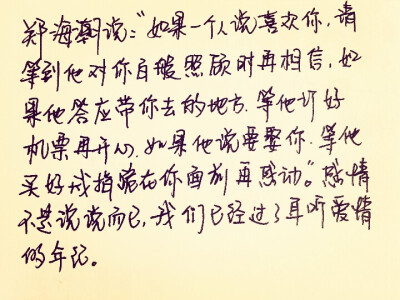 郑海潮说:"如果一个人说喜欢你,请
等到他对你百般照顾时再相信,如
果他答应带你去的地方.等他订好
机票再开心.如果他说要娶你.等他
买好戒指跪在你面前再感动"。感情
不是说说而已,我们已经过了耳听爱情
的年纪。